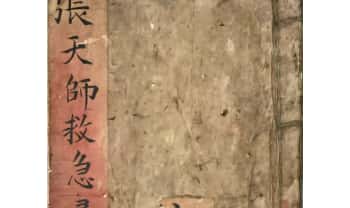 張天師救急